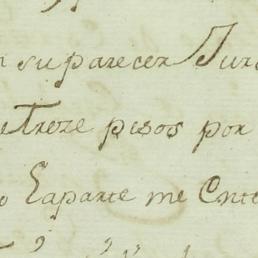 su parecer Jur
e Treze pesos por
o Laparte me Ente